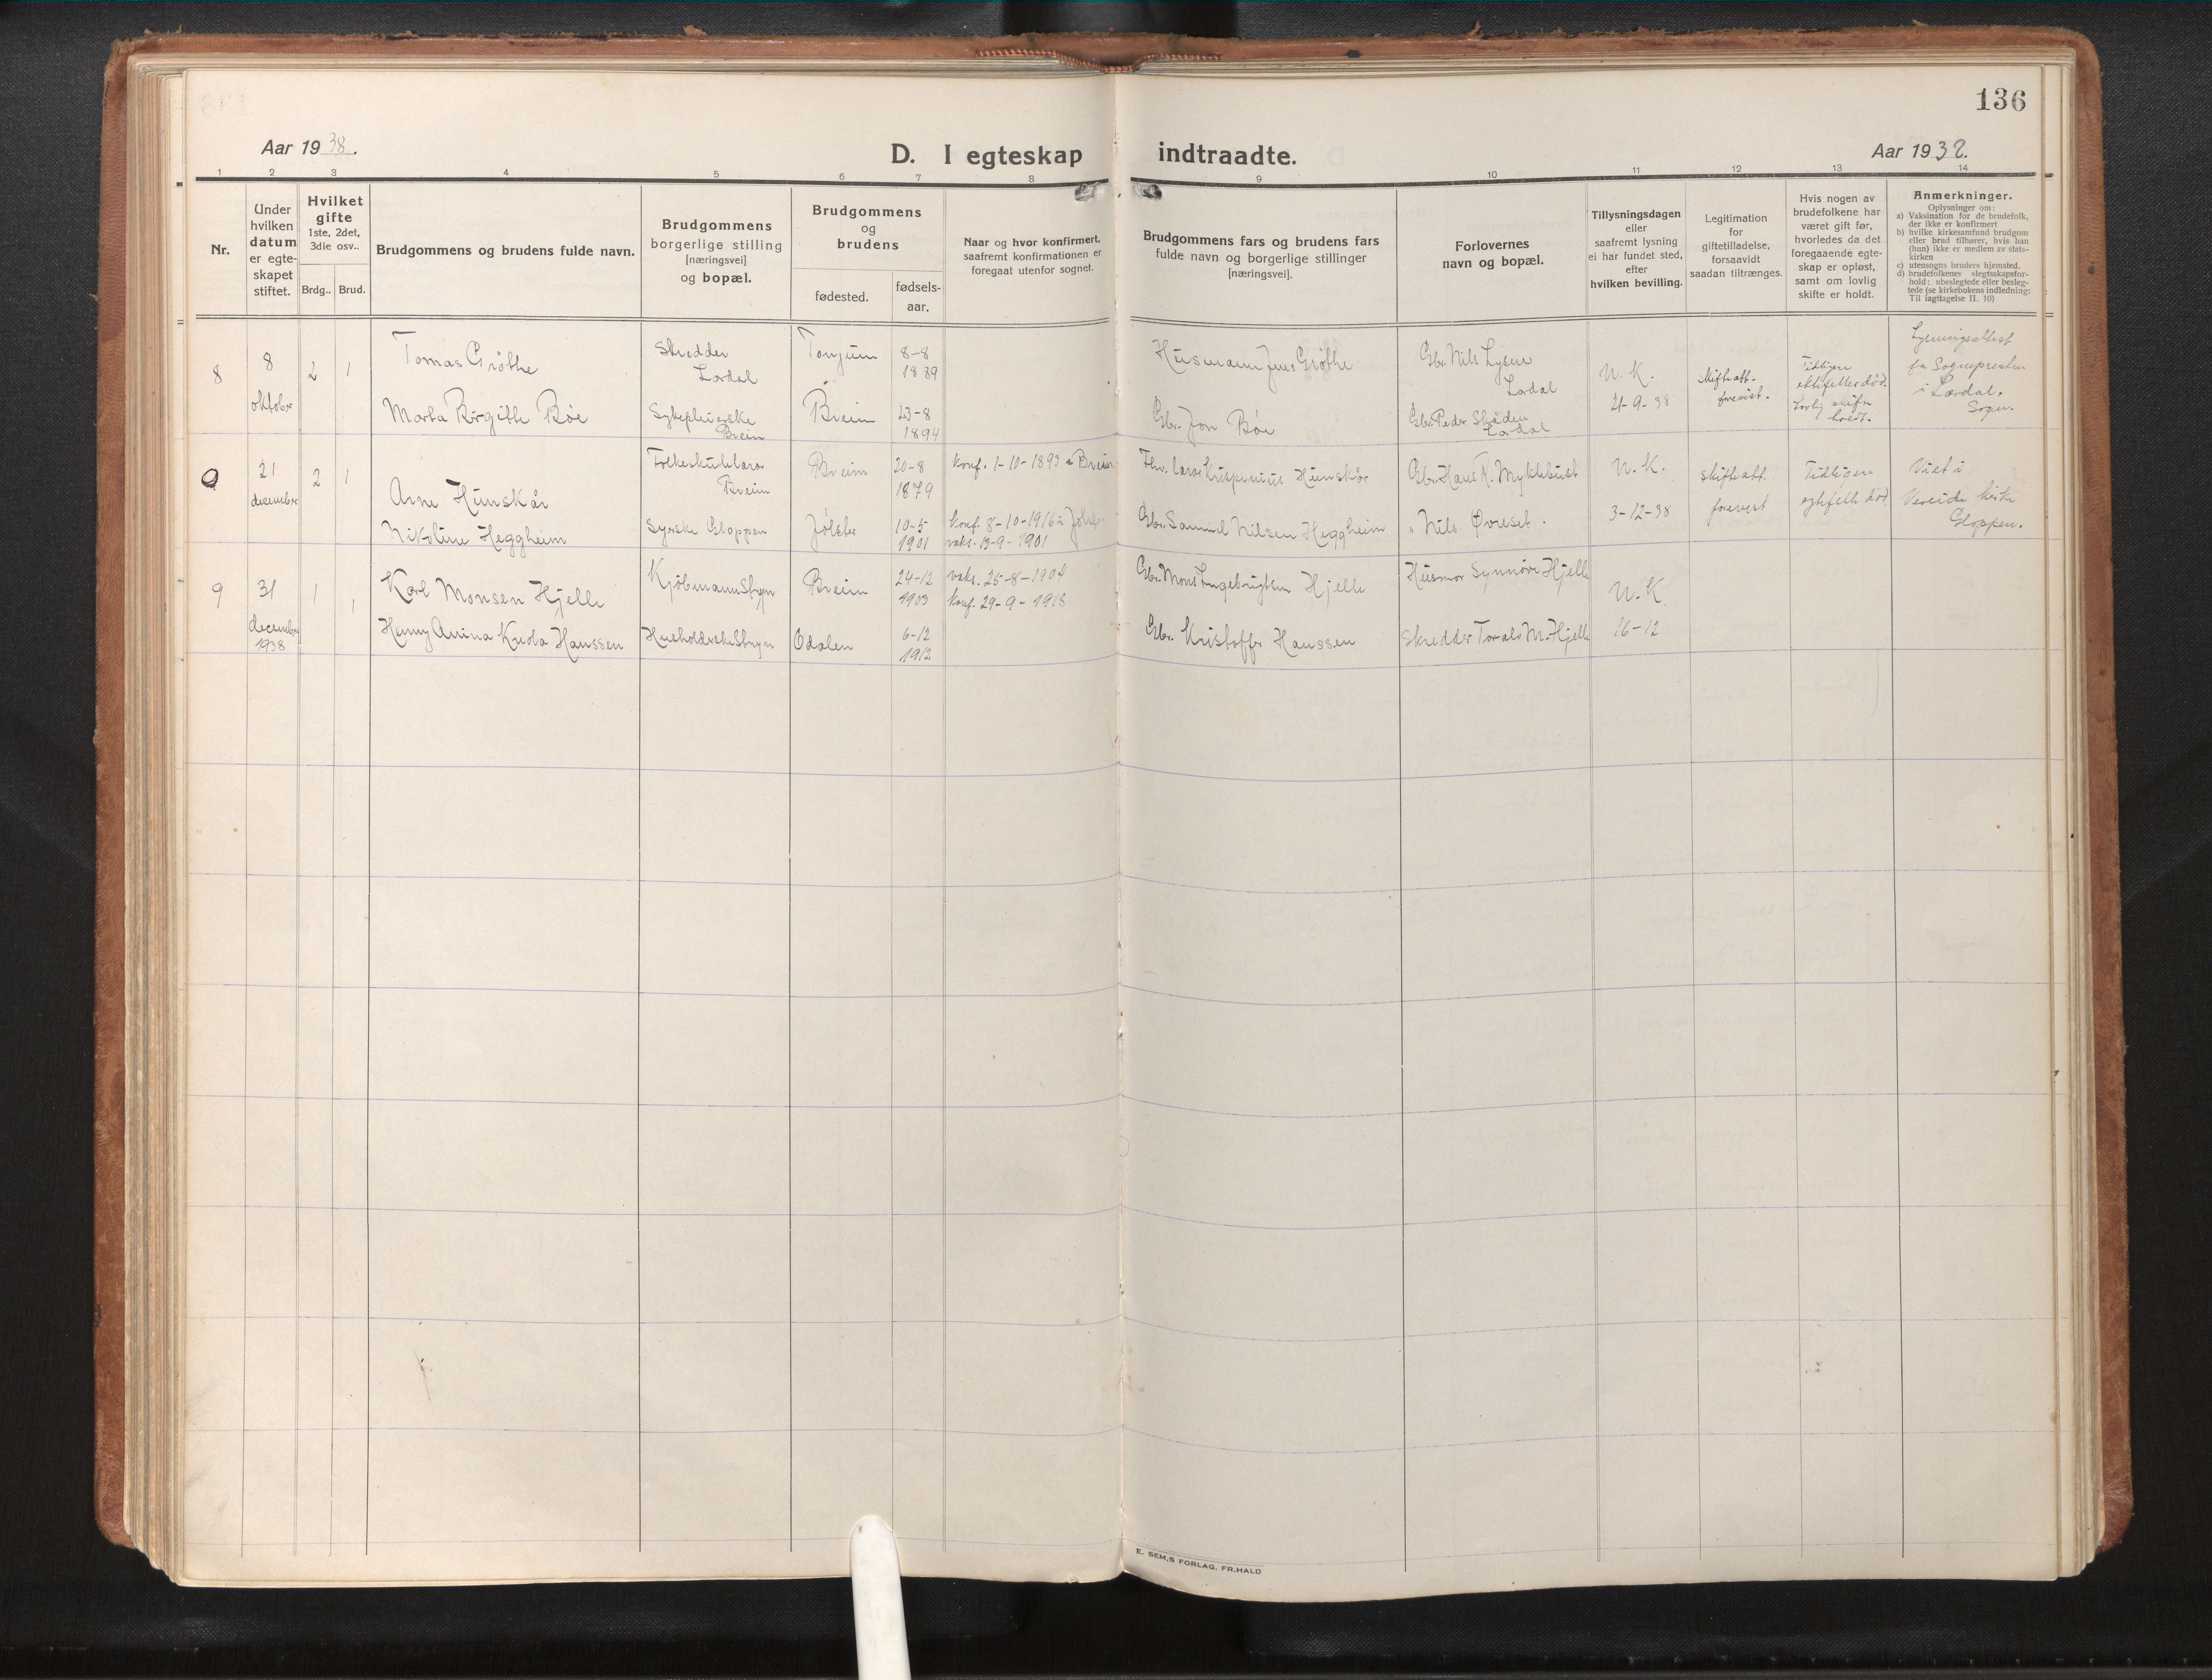 136
Aar 1938.
D. I egteskap indtraadte.
Aar 1938.
1 2 3 4 5 6 7 8 9 10 11 12 13 14
Nr.
Under
hvilken
datum
er egte-
skapet
stiftet.
Hvilket
gifte
1ste, 2det,
3die osv..
Brdg..
Brud.
Brudgommens og brudens fulde navn.
Brudgommens
borgerlige stilling
[næringsvei]
og bopæl.
Brudgommens
og
brudens
fødested.
fødsels-
aar.
Naar og hvor konfirmert,
saafremt konfirmationen er
foregaat utenfor sognet.
Brudgommens fars og brudens fars
fulde navn og borgerlige stillinger
[næringsvei].
Forlovernes
navn og bopæl.
Tillysningsdagen
eller
saafremt lysning
ei har fundet sted,
efter
hvilken bevilling.
Legitimation
for
giftetilladelse,
forsaavidt
saadan tiltrænges.
Hvis nogen av
brudefolkene har
været gift før,
hvorledes da det
foregaaende egte-
skap er opløst,
samt om lovlig
skifte er holdt.
Anmerkninger.
Oplysninger om:
a) Vaksination for de brudefolk,
der ikke er konfirmert
b) hvilke kirkesamfund brudgom
eller brud tilhører, hvis han
(hun) ikke er medlem av stats-
kirken
c) utensogns bruders hjemsted.
d) brudefolkenes slegtsskapsfor-
hold: ubeslegtede eller besleg-
tede (se kirkebokens indledning:
Til iagttagelse II. 10)
8
8
oktober
2
1
Tomas Grøthe
Skredder
Lærdal
Tonjum
8-8
1889
Husmann Jens Grøthe
Gbr. Nils Lysne
Lærdal
N. K.
21-9-38
Skifteatt.
forevist.
Tidligere
ektefelle død.
Lovlig skifte
holdt.
Lysningsattest
fra Sognepresten
i Lærdal.
Sogn.
Marta Birgitte Bøe
Sykepleierske
Breim
Breim
23-8
1894
Gbr. Jon Bøe
Gbr. Peder
Lærdal
9
21
december
2
1
Arne Hunskår
Folkeskulelærar
Breim
Breim
20-8
1879
konf. 1-10-1893 i Breim
Fhv. lærar Krispinius Hunskår
Gbr. Hans R. Myklebust
N. K.
3-12-38
skifteatt.
forevist
Tidligere
egtefelle død
Viet i
Vereide kirke
Gloppen.
Nikoline Heggheim
Syerske Gloppen
Jølster
10-5
1901
konf. 8-10-1916 i Jølster
vaks. 13-9-1901
Gbr. Samuel Nilsen Heggheim
" Nils Øvreset.
9
31
december
1938
1
1
Karl Monsen Hjelle
Kjøbmann Stryn
Breim
24-12
1903
vaks. 25-8-1904
konf. 29-9-1918
Gbr. Mons Ingebrigtsen Hjelle
Husmor Synnøve Hjelle
N. K.
16-12
Henny Anina Knola Hanssen
Husholderske Stryn
Odalen
6-12
1912
Gbr. Kristoffer Hanssen
Skredder Torald M. Hjelle
E. SEM.S FORLAG, FR.HALD